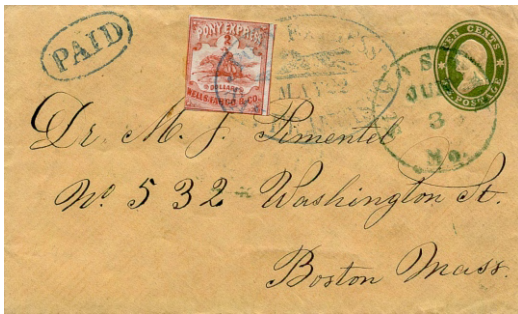 PAID
PONY EXPRESS
2
DOLLARS
WELLS, FARGO & CO.
MAY 22
TEN CENTS
U.S. POSTAGE
JU
3
Mo.
Dr. M. J. Pimentel
No 532 Washington St.
Boston Mass.